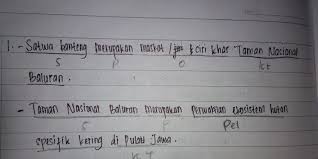 1. - Satwa banteng merupakan maskot / ciri khas Taman Nasional
S P O Ket
Baluran.
- Taman Nasional Baluran merupakan perwakilan ekosistem hutan
S P Pel
spesifik kering di Pulau Jawa.